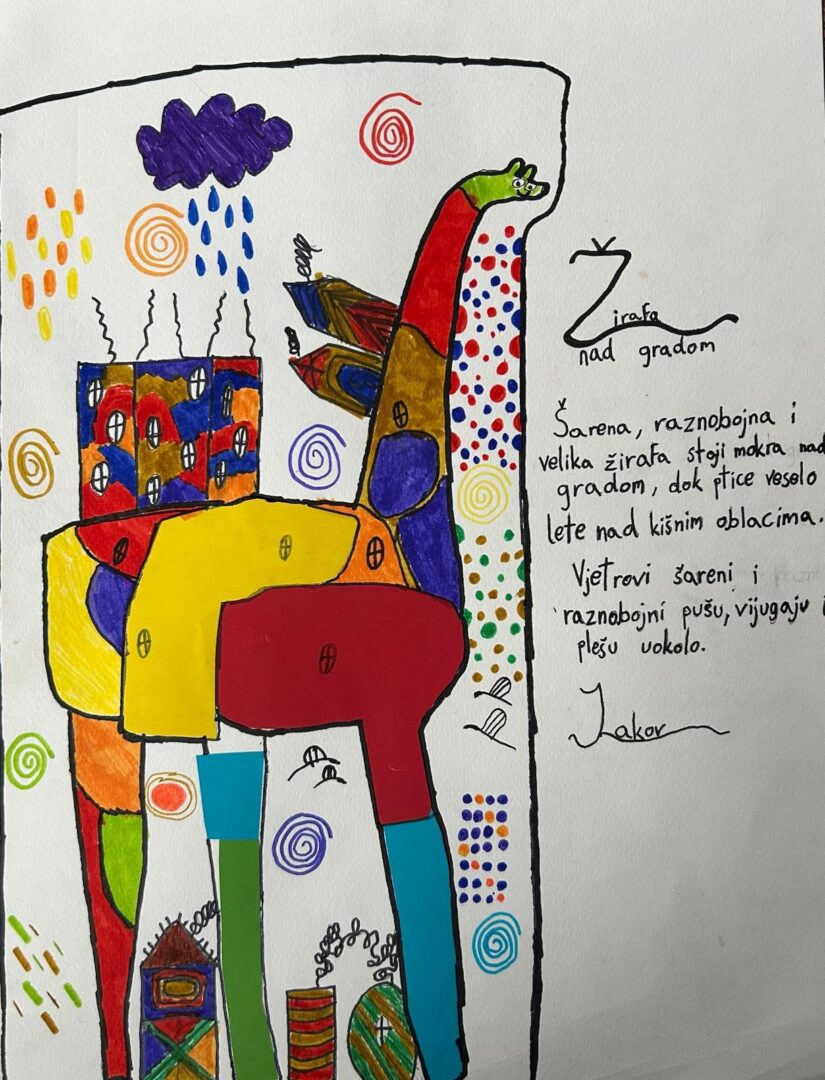 Žirafa
nad gradom
Šarena, raznobojna i
velika žirafa stoji mokra nad
gradom, dok ptice veselo
lete nad kišnim oblacima.
Vjetrovi šareni i
raznobojni pušu, vijugaju i
plešu uokolo.
Jakov